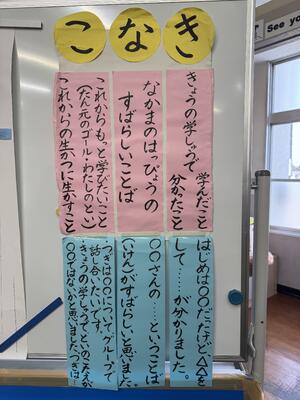 き
きょうの学しゅうで
学んだこと
分かったこと
はじめは〇〇だったけど△△を
して……が分かりました。
な
なかまのはっぴょうの
すばらしいことば
〇〇さんの…ということば
(いけん)がすばらしいと思いました。
こ
これからもっと学びたいこと
(たん元のゴール・わたしのとい)
これからの生かつに生かすこと
つぎは〇〇についてグループで
話し合いたいです。
きょうの学しゅうで「とい」のこたえが
〇〇ではないかと思いました。つぎは…
See you